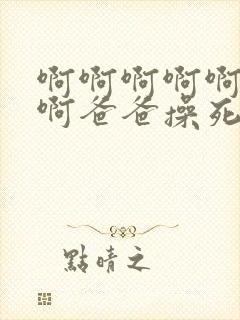 啊啊啊啊啊
啊爸爸操死
點晴之